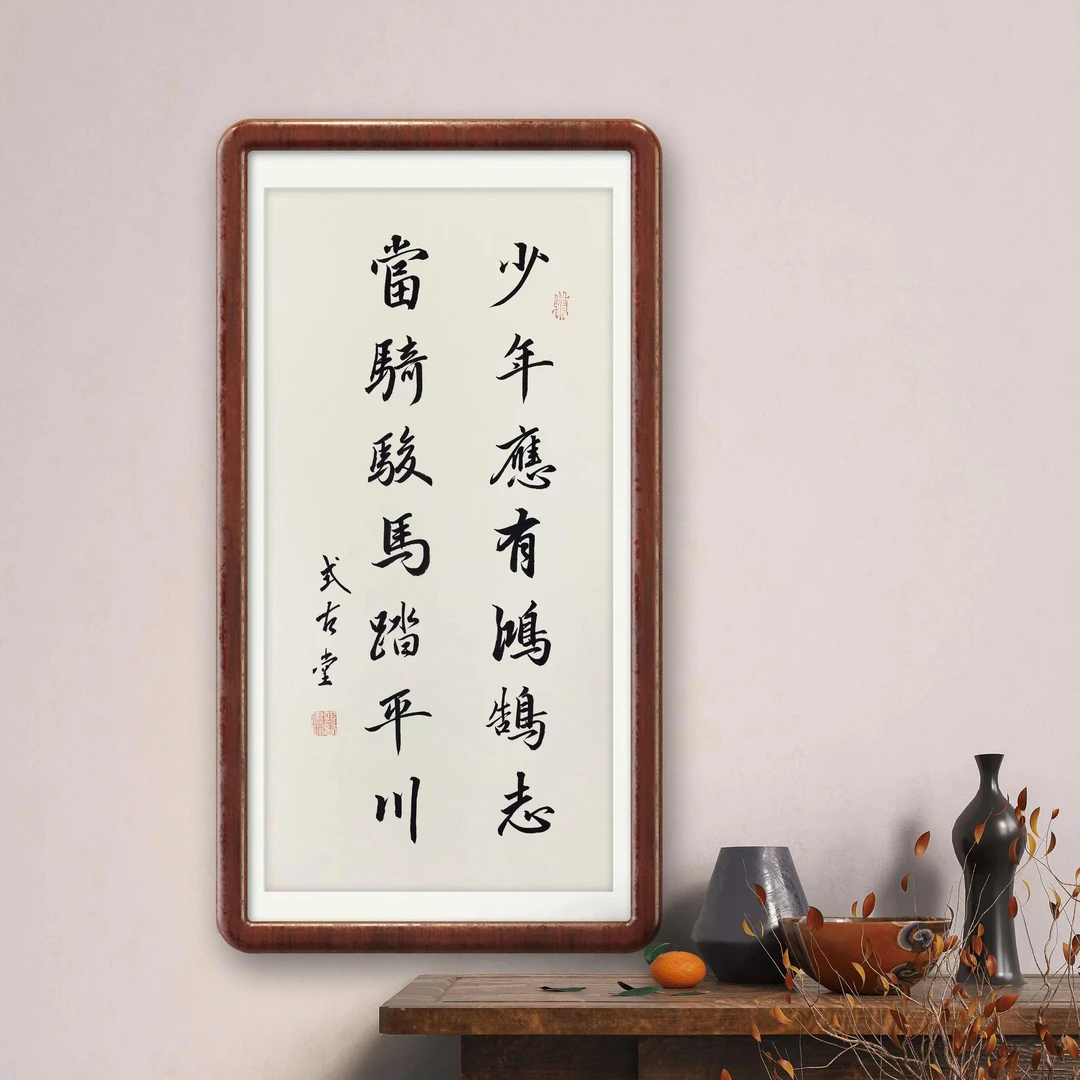 少年應有鴻鵠志
當騎駿馬踏平川
式古堂